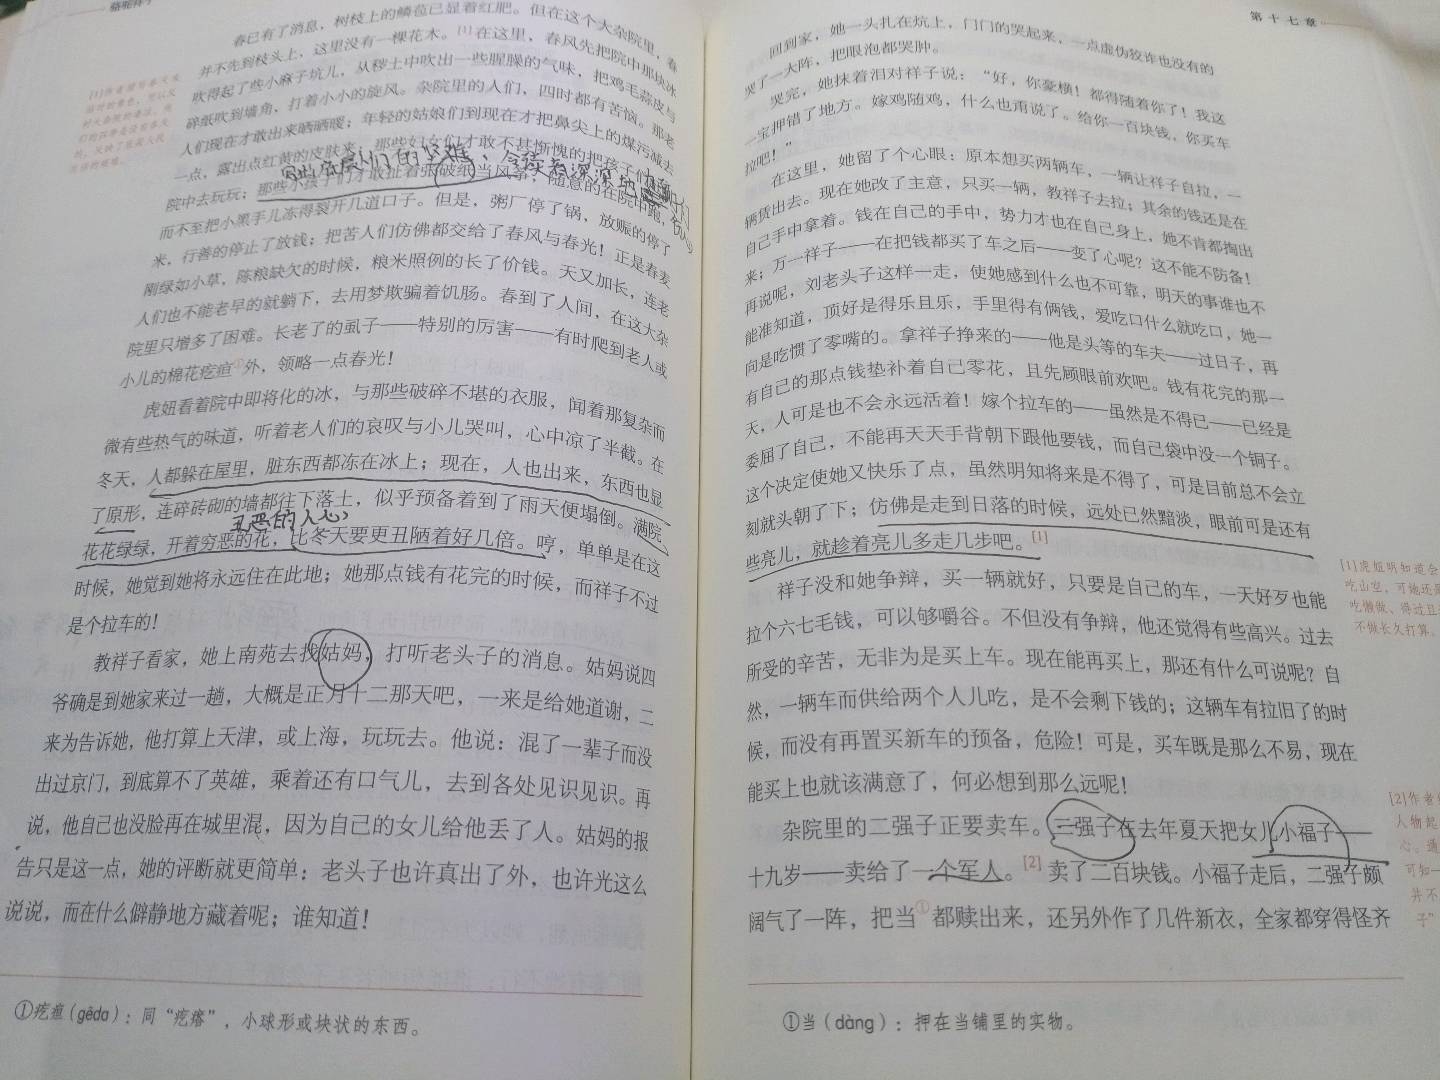 骆驼祥子
春已有了消息，树枝上的鳞苞已显着红肥。但在这个大杂院里，春
并不先到枝头上，这里没有一棵花木。[1]在这里，春风先把院中那块冰
吹得起了些小麻子坑儿，从秽土中吹出一些腥臊的气味，把鸡毛蒜皮与
碎纸吹到墙角，打着小小的旋风。杂院里的人们，四时都有苦恼。那老
人们现在才敢出来晒晒暖；年轻的姑娘们到现在才把鼻尖上的煤污减去
一点，露出点红黄的皮肤来；那些妇女们才敢不甚惭愧的把孩子们
院中去玩玩；那些小孩子们才敢扯着张破纸当风筝，随意的在院中跑，
而不至把小黑手儿冻得裂开几道口子。但是，粥厂停了锅，放赈的停了
米，行善的停止了放钱；把苦人们仿佛都交给了春风与春光！正是春麦
刚绿如小草，陈粮缺欠的时候，粮米照例的长了价钱。天又加长，连老
人们也不能老早的就躺下，去用梦欺骗着饥肠。春到了人间，在这大杂
院里只增多了困难。长老了的虱子——特别的厉害——有时爬到老人或
小儿的棉花疙疸①外，领略一点春光！
虎妞看着院中即将化的冰，与那些破碎不堪的衣服，闻着那复杂而
微有些热气的味道，听着老人们的哀叹与小儿哭叫，心中凉了半截。在
冬天，人都躲在屋里，脏东西都冻在冰上；现在，人也出来，东西也显
了原形，连碎砖砌的墙都往下落土，似乎预备着到了雨天便塌倒。满院
丑恶的人心
花花绿绿，开着穷恶的花，比冬天要更丑陋着好几倍。哼，单单是在这
时候，她觉到她将永远住在此地；她那点钱有花完的时候，而祥子不过
是个拉车的！
教祥子看家，她上南苑去找姑妈，打听老头子的消息。姑妈说四
爷确是到她家来过一趟，大概是正月十二那天吧，一来是给她道谢，二
来为告诉她，他打算上天津，或上海，玩玩去。他说：混了一辈子而没
出过京门，到底算不了英雄，乘着还有口气儿，去到各处见识见识。再
说，他自己也没脸再在城里混，因为自己的女儿给他丢了人。姑妈的报
告只是这一点，她的评断就更简单：老头子也许真出了外，也许光这么
说说，而在什么僻静地方藏着呢；谁知道！
①疙疸（gēda）：同“疙瘩”，小球形或块状的东西。
第十七章
回到家，她一头扎在炕上，门门的哭起来，一点虚伪狡诈也没有的
哭了一大阵，把眼泡都哭肿。
哭完，她抹着泪对祥子说：“好，你豪横！都得随着你了！我这
一宝押错了地方。嫁鸡随鸡，什么也甭说了。给你一百块钱，你买车
拉吧！”
在这里，她留了个心眼：原本想买两辆车，一辆让祥子自拉，一
辆赁出去。现在她改了主意，只买一辆，教祥子去拉；其余的钱还是在
自己手中拿着。钱在自己的手中，势力才也在自己身上，她不肯都掏出
来；万一祥子——在把钱都买了车之后——变了心呢？这不能不防备！
再说呢，刘老头子这样一走，使她感到什么也不可靠，明天的事谁也不
能准知道，顶好是得乐且乐，手里得有俩钱，爱吃口什么就吃口，她一
向是吃惯了零嘴的。拿祥子挣来的——他是头等的车夫——过日子，再
有自己的那点钱垫补着自己零花，且先顾眼前欢吧。钱有花完的那一
天，人可是也不会永远活着！嫁个拉车的——虽然是不得已——已经是
委屈了自己，不能再天天手背朝下跟他要钱，而自己袋中没一个铜子。
这个决定使她又快乐了点，虽然明知将来是不得了，可是目前总不会立
刻就头朝了下；仿佛是走到日落的时候，远处已然黯淡，眼前可是还有
些亮儿，就趁着亮儿多走几步吧。[1]
[1]虎妞明知道会
吃山空，可她还是
吃懒做、得过且
不做长久打算。
祥子没和她争辩，买一辆就好，只要是自己的车，一天好歹也能
拉个六七毛钱，可以够嚼谷。不但没有争辩，他还觉得有些高兴。过去
所受的辛苦，无非为是买上车。现在能再买上，那还有什么可说呢？自
然，一辆车而供给两个人儿吃，是不会剩下钱的；这辆车有拉旧了的时
候，而没有再置买新车的预备，危险！可是，买车既是那么不易，现在
能买上也就该满意了，何必想到那么远呢！
杂院里的二强子正要卖车。二强子在去年夏天把女儿小福子——
十九岁——卖给了一个军人。[2]卖了二百块钱。小福子走后，二强子颇
阔气了一阵，把当①都赎出来，还另外作了几件新衣，全家都穿得怪齐
[2]作者
人物起
心。通
可知一
并不
子”
①当（dàng）：押在当铺里的实物。